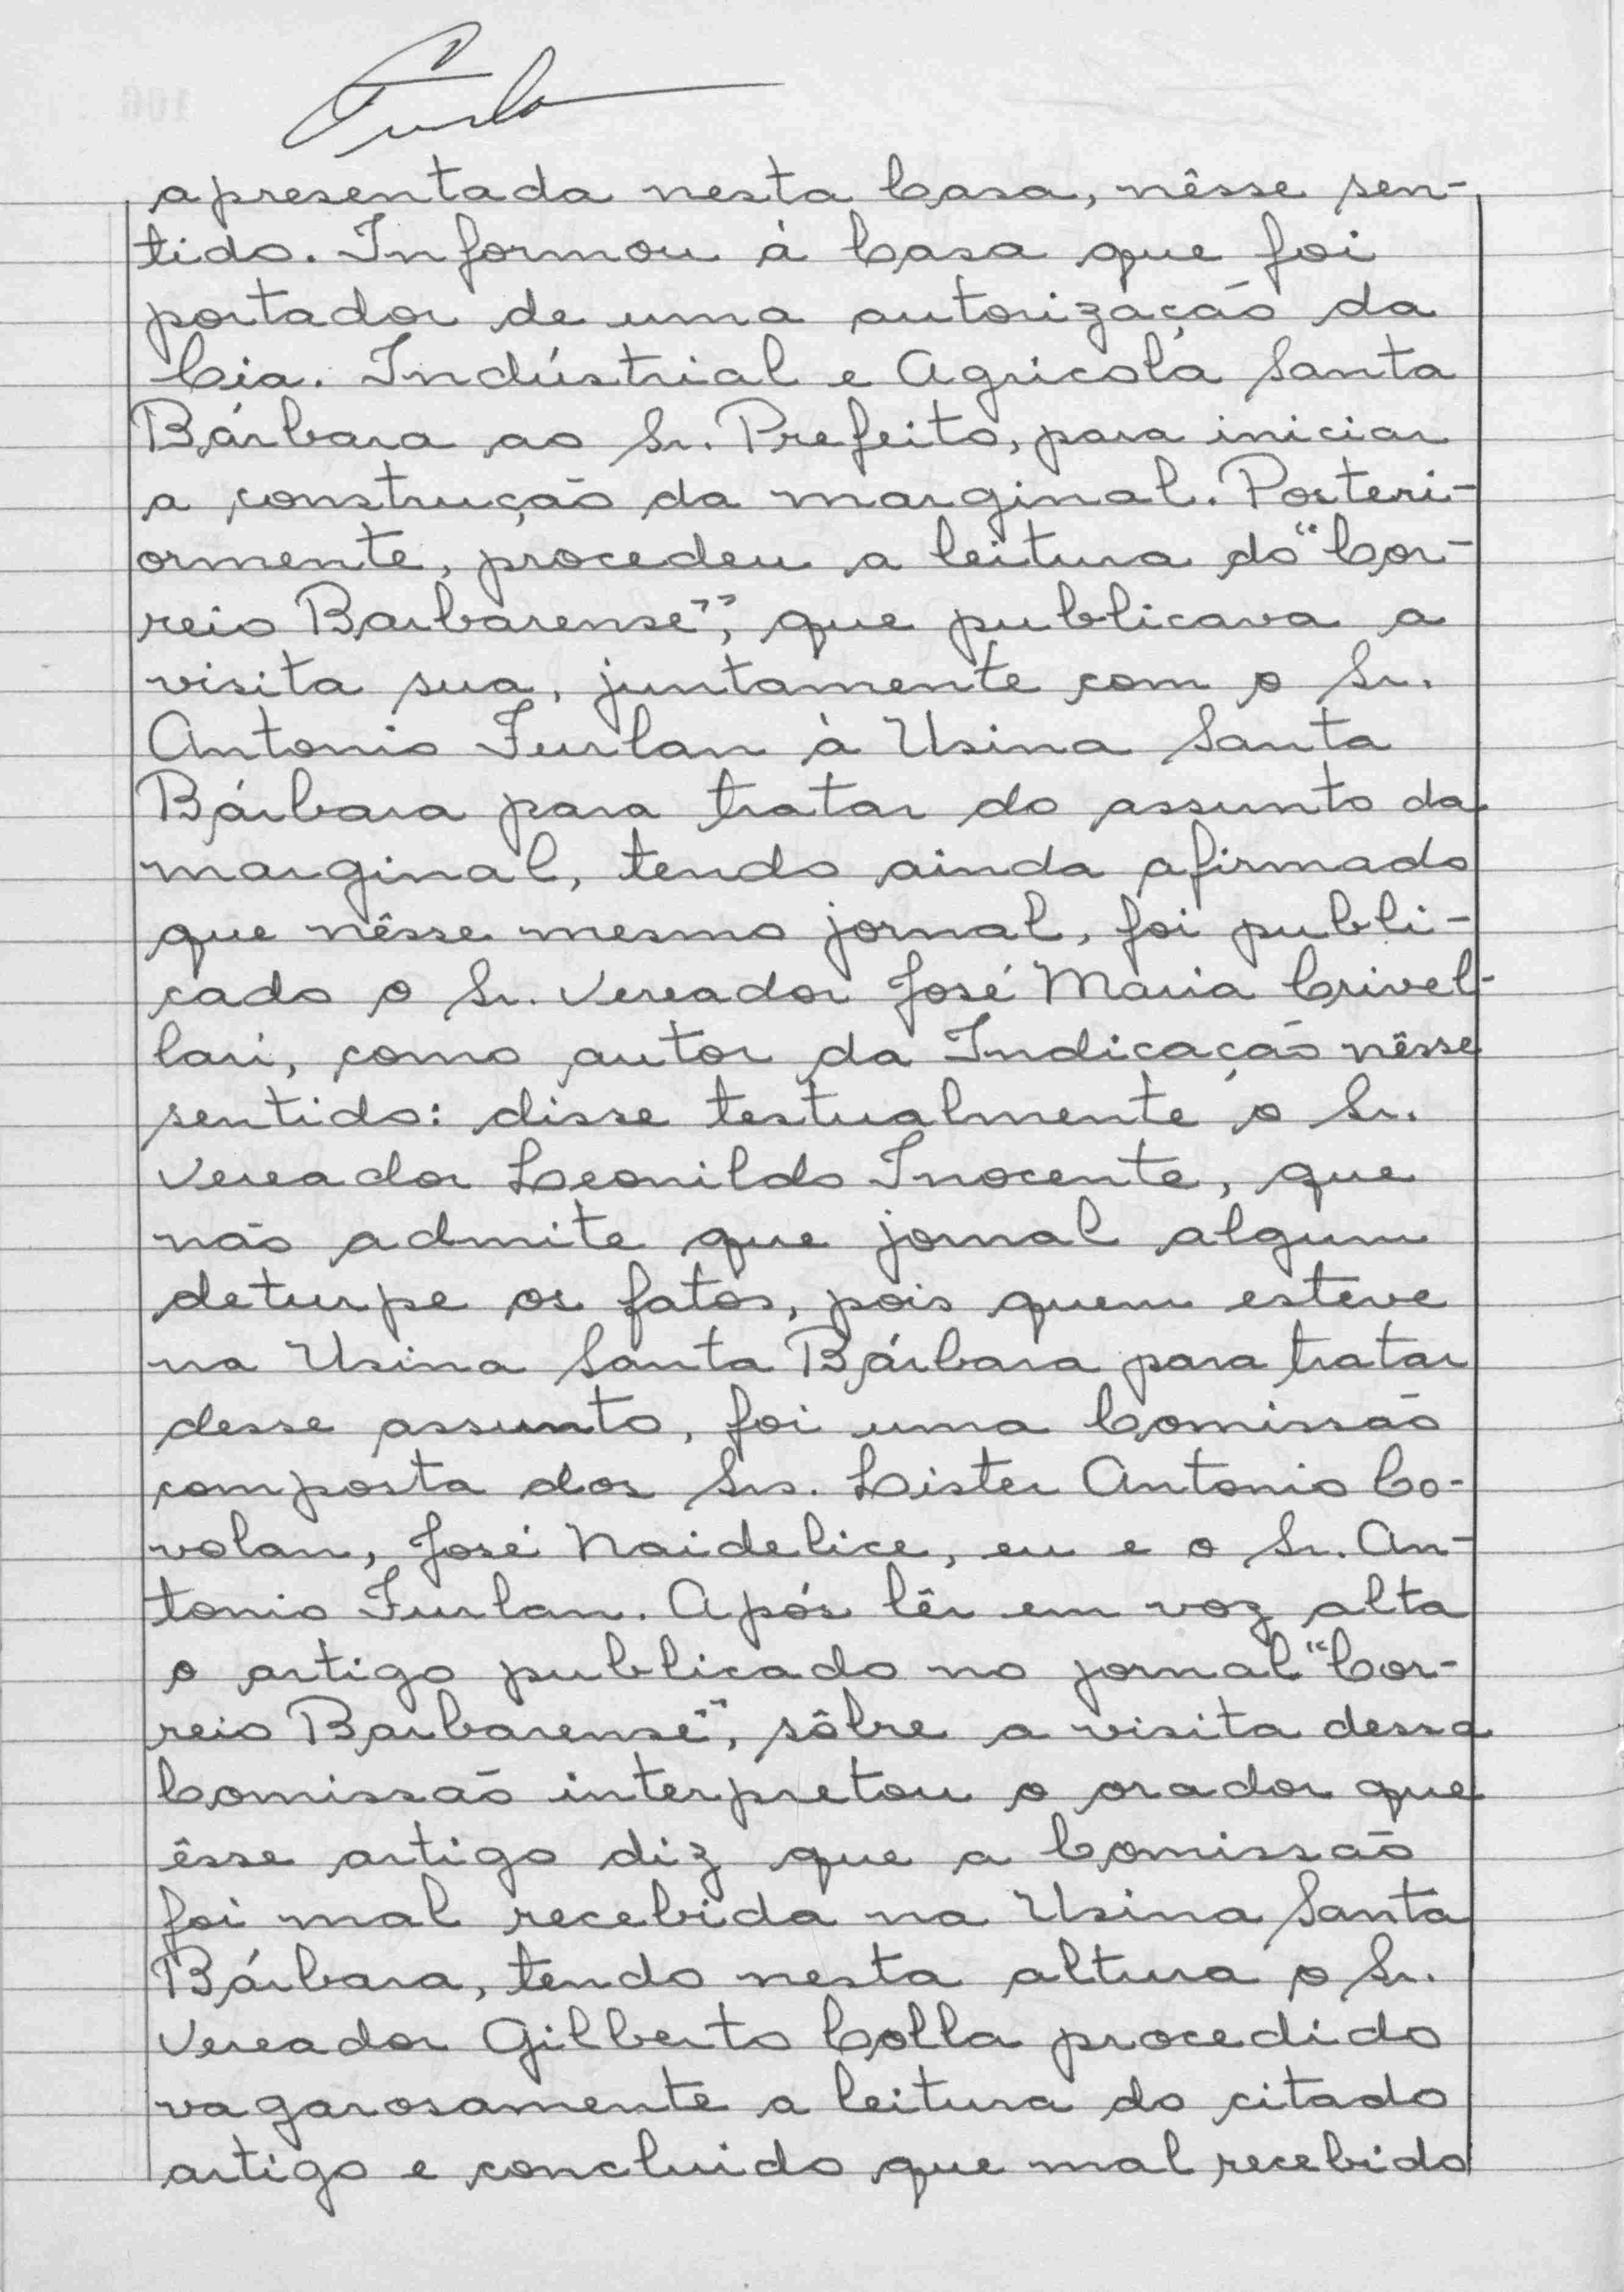 Furlan
apresentada nesta Casa, nêsse sen-
tido. Informou à Casa que foi
portador de uma autorização da
Cia. Indústrial e Agricola Santa
Bárbara ao Sr. Prefeito, para iniciar
a construção da marginal. Posteri-
ormente, procedeu a leitura do "Cor-
reio Barbarense", que publicava a
visita sua, juntamente com o Sr.
Antonio Furlan à Usina Santa
Bárbara para tratar do assunto da
marginal, tendo ainda afirmado
que nêsse mesmo jornal, foi publi-
cado o Sr. Vereador José Maria Crivel-
lari, como autor da Indicação nêsse
sentido: disse testualmente o Sr.
Vereador Leonildo Inocente, que
não admite que jornal algum
deturpe os fatos, pois quem esteve
na Usina Santa Bárbara para tratar
desse assunto, foi uma Comissão
composta dos Srs. Lister Antonio Co-
volan, José Naidelice, eu e o Sr. An-
tonio Furlan. Após lêr em voz alta
o artigo publicado no jornal "Cor-
reio Barbarense", sôbre a visita dessa
Comissão interpretou o orador que
êsse artigo diz que a Comissão
foi mal recebida na Usina Santa
Bárbara, tendo nesta altura o Sr.
Vereador Gilberto Colla procedido
vagarosamente a leitura do citado
artigo e concluido que mal recebido